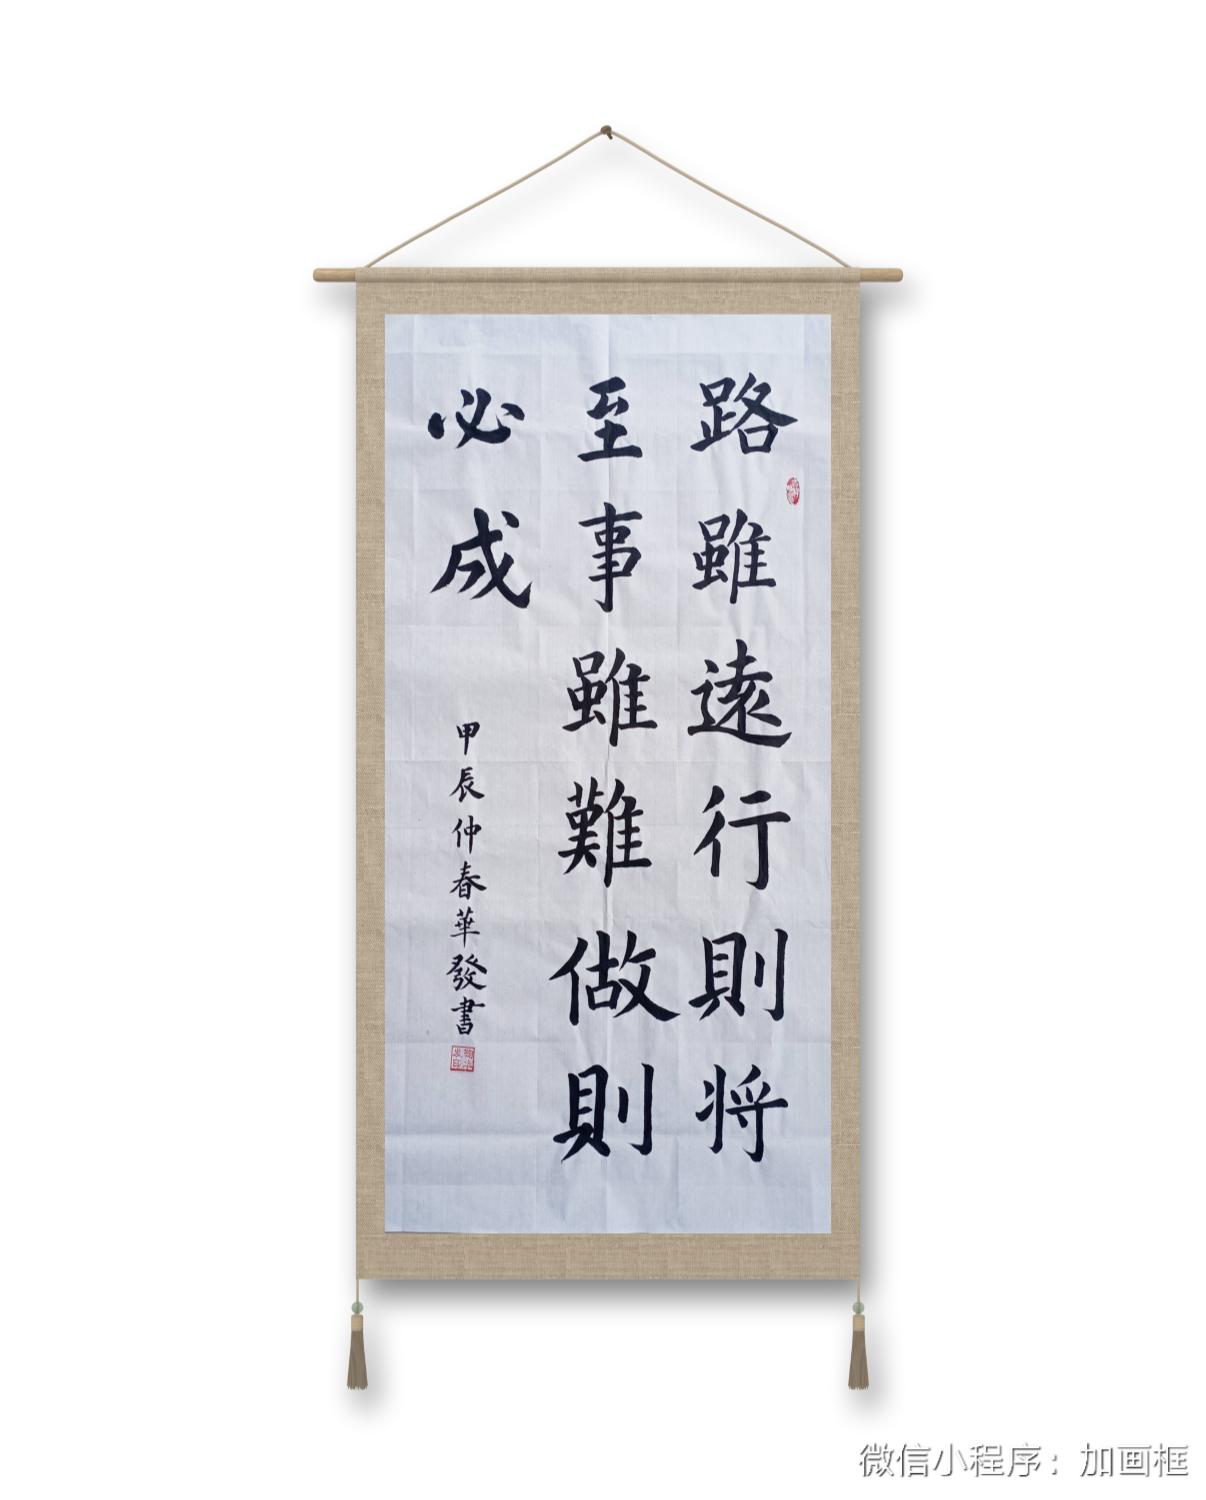 路雖遠行則将
至事雖難做則
必成
甲辰仲春華發書
微信小程序：加画框